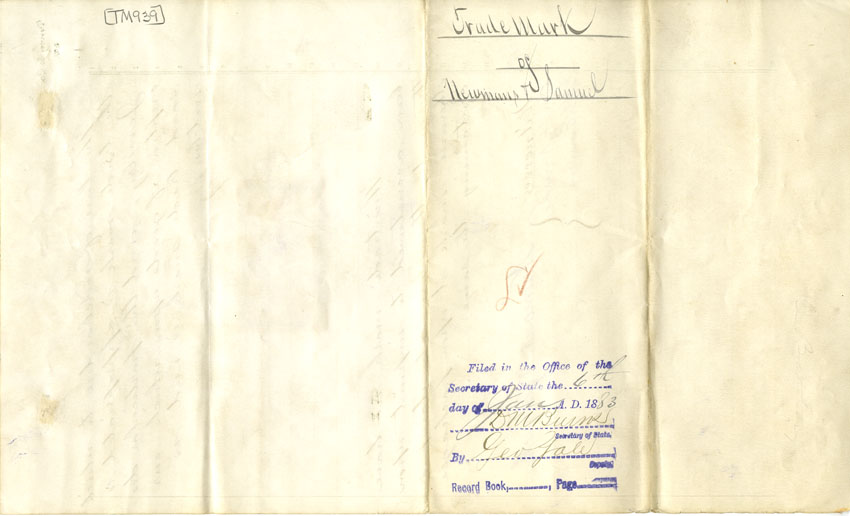 [TM939]
Trade Mark
of
Newmans & Samuel
Filed in the Office of the
Secretary of State the 6th
day of Jan A. D. 1883
D M Burns
Secretary of State.
By Geo
Deputy
Record Book, Page